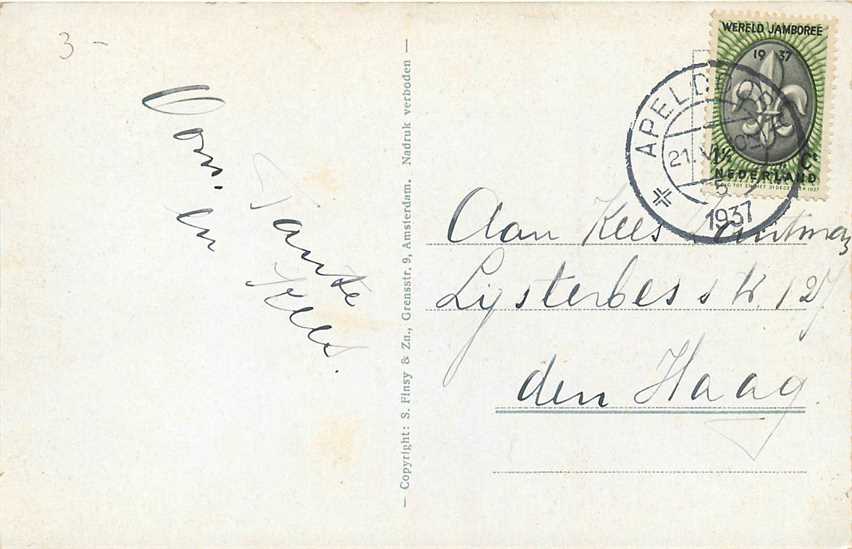 3 -
Oom en
Tante
Kees.
— Copyright: S. Finsy & Zn., Grensstr. 9, Amsterdam. Nadruk verboden —
WERELD JAMBOREE
1937
Ct
NEDERLAND
APELDOORN
21.
1937
Aan Kees
Lijsterbesstr. 127
den Haag.